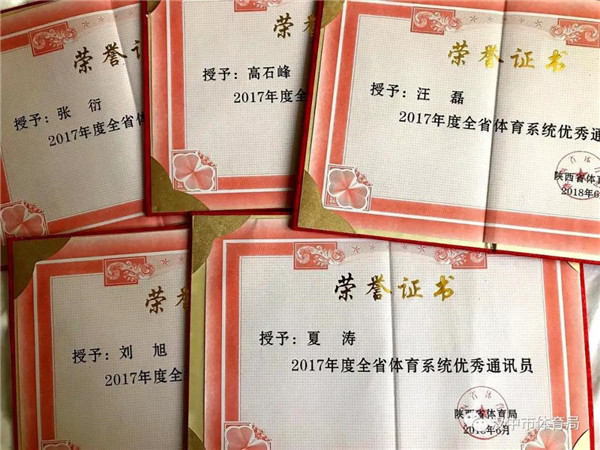 荣誉证
授予：张 衍
2017年度全省体
荣誉
授予：高石峰
2017年度全
荣誉证书
授予：汪 磊
2017年度全省体育系统优秀通
陕西省体育
2018年6
荣
授予：刘 旭
2017年度全
荣誉证书
授予：夏 涛
2017年度全省体育系统优秀通讯员
陕西省体育局
2018年6月
汉中市体育局